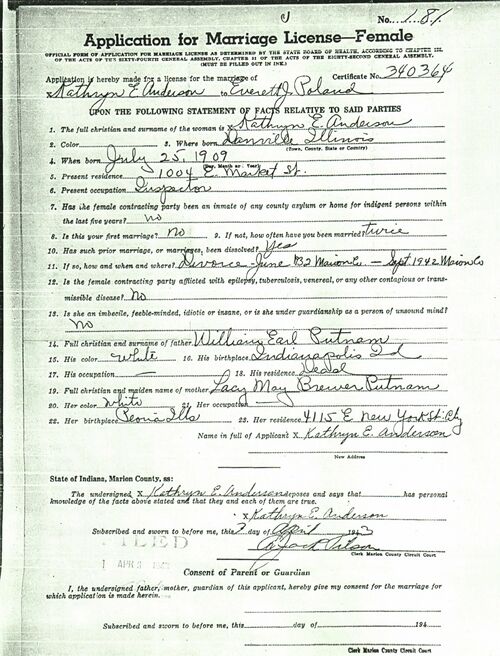 No. 181
Application for Marriage License—Female
OFFICIAL FORM OF APPLICATION FOR MARRIAGE LICENSE AS DETERMINED BY THE STATE BOARD OF HEALTH, ACCORDING TO CHAPTER III,
OF THE ACTS OF THE SIXTY-FOURTH GENERAL ASSEMBLY, CHAPTER II OF THE ACTS OF THE EIGHTY-SECOND GENERAL ASSEMBLY.
(MUST BE FILLED OUT IN INK.)
Application is hereby made for a license for the marriage of Certificate No. 340364
Kathryn E. Anderson to Everett J. Poland
UPON THE FOLLOWING STATEMENT OF FACTS RELATIVE TO SAID PARTIES
1. The full christian and surname of the woman is x Kathryn E. Anderson
2. Color 3. Where born Danville Illinois
(Town, County, State or Country)
4. When born July 25, 1909
(Day, Month or Year)
5. Present residence 1004 E. Market St.
6. Present occupation Inspector
7. Has the female contracting party been an inmate of any county asylum or home for indigent persons within
the last five years? no
8. Is this your first marriage? No 9. If not, how often have you been married? twice
10. Has such prior marriage, or marriages, been dissolved? Yes
11. If so, how and when and where? Divorce - June '32 Marion Co. - Sept. 1942 Marion Co
12. Is the female contracting party afflicted with epilepsy, tuberculosis, venereal, or any other contagious or trans-
missible disease? No
13. Is she an imbecile, feeble-minded, idiotic or insane, or is she under guardianship as a person of unsound mind?
No
14. Full christian and surname of father William Earl Putnam
15. His color White 16. His birthplace Indianapolis Ind
17. His occupation — 18. His residence Dead
19. Full christian and maiden name of mother Lacy May Brewer Putnam
20. Her color White 21. Her occupation —
22. Her birthplace Peoria Ills 23. Her residence 4115 E New York St. City
Name in full of Applicant X Kathryn E. Anderson
New Address
State of Indiana, Marion County, ss:
The undersigned X Kathryn E. Anderson deposes and says that has personal
knowledge of the facts above stated and that they and each of them are true.
x Kathryn E. Anderson
Subscribed and sworn to before me, this 3 day of April 1943
A. Jack Tilson
Clerk Marion County Circuit Court
FILED
APR 3 1943
Consent of Parent or Guardian
I, the undersigned father, mother, guardian of this applicant, hereby give my consent for the marriage for
which application is made herein.
Subscribed and sworn to before me, this day of 194
Clerk Marion County Circuit Court